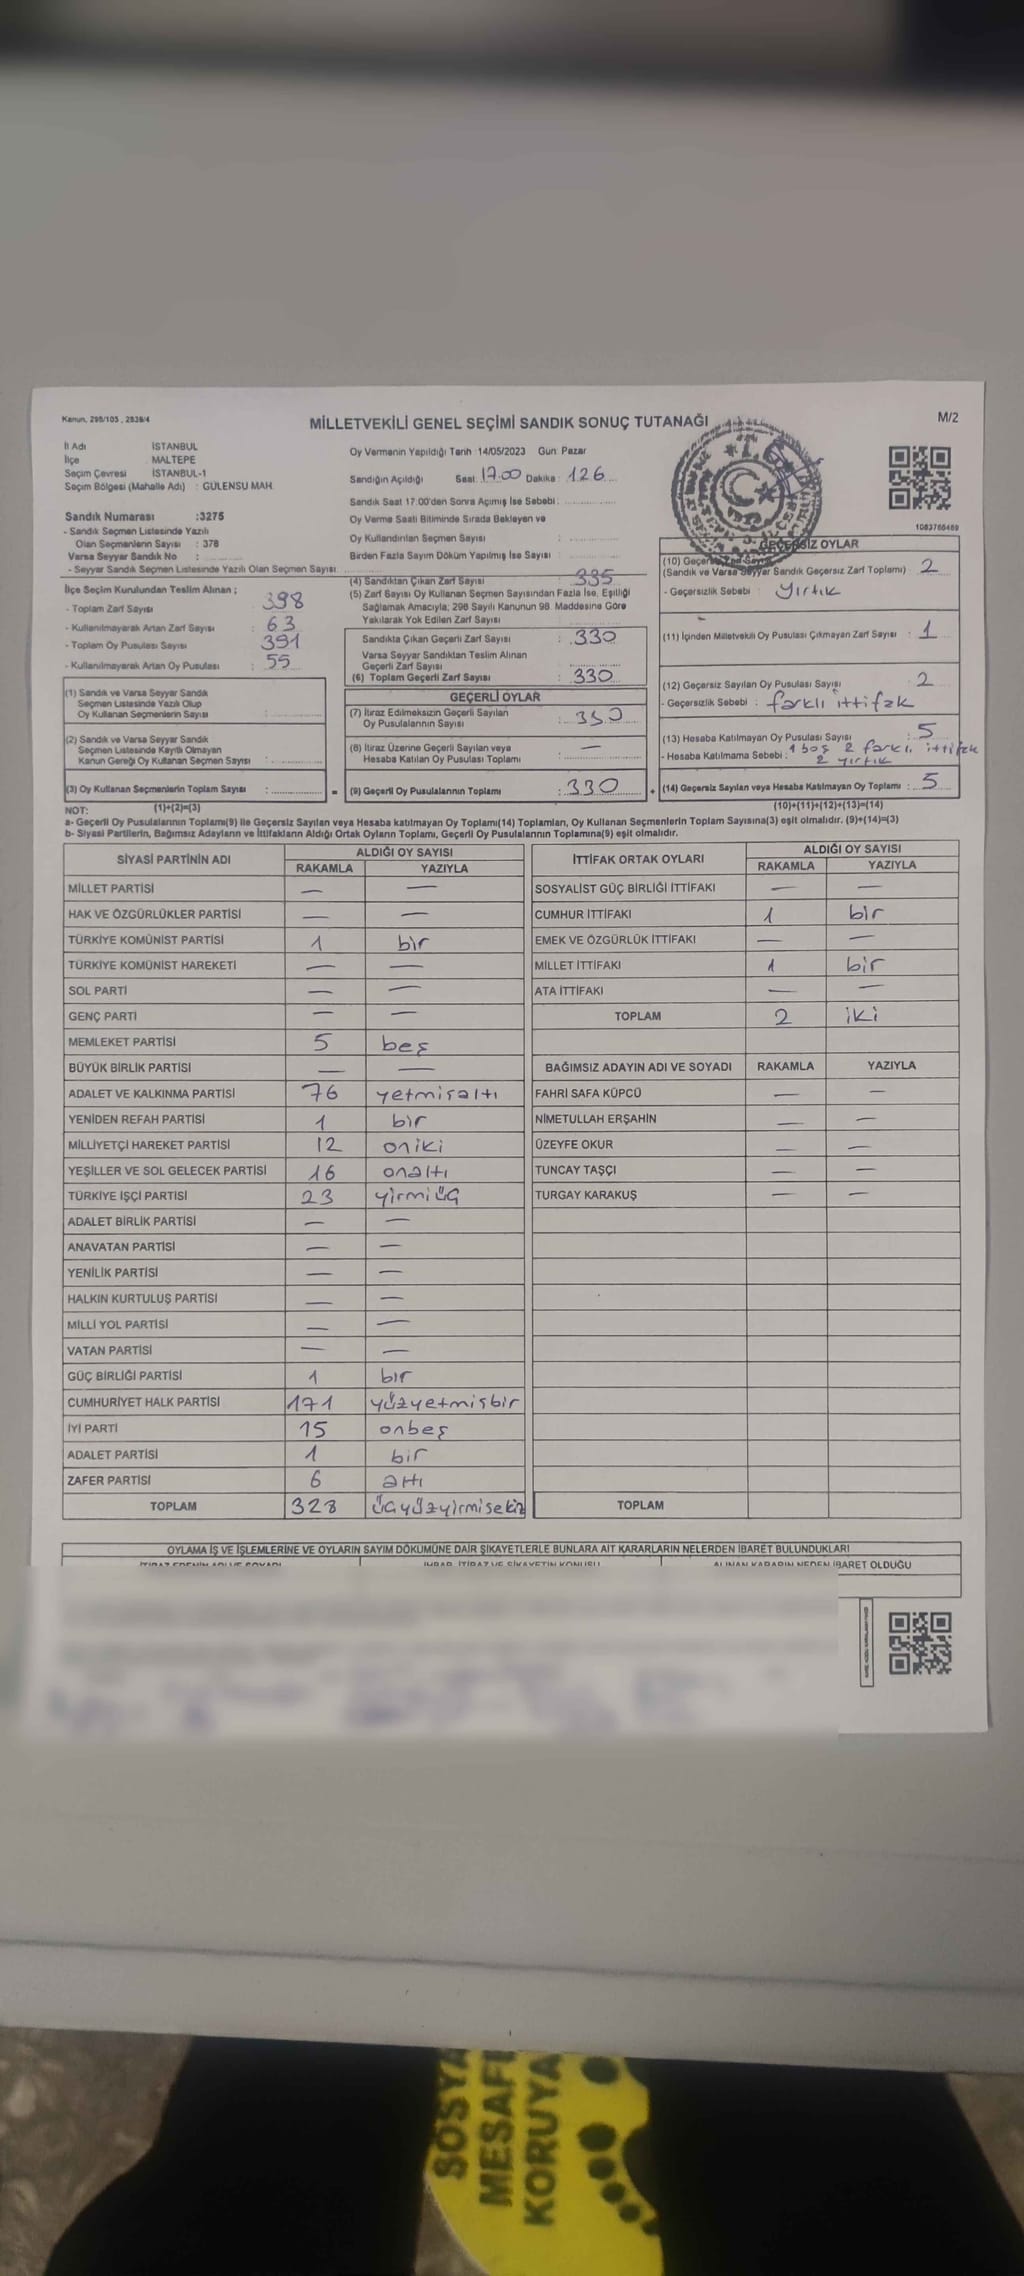 Kanun, 298/105 , 2839/4
MİLLETVEKİLİ GENEL SEÇİMİ SANDIK SONUÇ TUTANAĞI
M/2
İl Adı İSTANBUL
İlçe MALTEPE
Seçim Çevresi İSTANBUL-1
Seçim Bölgesi (Mahalle Adı) : GÜLENSU MAH.
Sandık Numarası :3275
- Sandık Seçmen Listesinde Yazılı
Olan Seçmenlerin Sayısı : 378
Varsa Seyyar Sandık No :
- Seyyar Sandık Seçmen Listesinde Yazılı Olan Seçmen Sayısı
İlçe Seçim Kurulundan Teslim Alınan ;
- Toplam Zarf Sayısı : 398
- Kullanılmayarak Artan Zarf Sayısı : 63
- Toplam Oy Pusulası Sayısı : 391
- Kullanılmayarak Artan Oy Pusulası : 55
(1) Sandık ve Varsa Seyyar Sandık
Seçmen Listesinde Yazılı Olup
Oy Kullanan Seçmenlerin Sayısı :
(2) Sandık ve Varsa Seyyar Sandık
Seçmen Listesinde Kayıtlı Olmayan
Kanun Gereği Oy Kullanan Seçmen Sayısı :
(3) Oy Kullanan Seçmenlerin Toplam Sayısı :
Oy Vermenin Yapıldığı Tarih :14/05/2023 Gün: Pazar
Sandığın Açıldığı Saat: 17.00 Dakika : 126
Sandık Saat 17:00'den Sonra Açımış İse Sebebi :
Oy Verme Saati Bitiminde Sırada Bekleyen ve
Oy Kullandırılan Seçmen Sayısı :
Birden Fazla Sayım Döküm Yapılmış İse Sayısı :
(4) Sandıktan Çıkan Zarf Sayısı : 335
(5) Zarf Sayısı Oy Kullanan Seçmen Sayısından Fazla İse, Eşitliği
Sağlamak Amacıyla; 298 Sayılı Kanunun 98. Maddesine Göre
Yakılarak Yok Edilen Zarf Sayısı :
Sandıkta Çıkan Geçerli Zarf Sayısı : 330
Varsa Seyyar Sandıktan Teslim Alınan
Geçerli Zarf Sayısı
(6) Toplam Geçerli Zarf Sayısı : 330
GEÇERLİ OYLAR
(7) İtiraz Edilmeksizin Geçerli Sayılan
Oy Pusulalarının Sayısı : 330
(8) İtiraz Üzerine Geçerli Sayılan veya
Hesaba Katılan Oy Pusulası Toplamı : —
= (9) Geçerli Oy Pusulalarının Toplamı : 330 +
1083766469
GEÇERSİZ OYLAR
(Sandık ve Varsa Seyyar Sandık Geçersiz Zarf Toplamı) : 2
- Geçersizlik Sebebi : yırtık
(11) İçinden Milletvekili Oy Pusulası Çıkmayan Zarf Sayısı : 1
(12) Geçersiz Sayılan Oy Pusulası Sayısı : 2
- Geçersizlik Sebebi : farklı ittifak
(13) Hesaba Katılmayan Oy Pusulası Sayısı : 5
- Hesaba Katılmama Sebebi : 1 boş 2 farklı ittifak
2 yırtık
(14) Geçersiz Sayılan veya Hesaba Katılmayan Oy Toplamı : 5
NOT: (1)+(2)=(3) (10)+(11)+(12)+(13)=(14)
a- Geçerli Oy Pusulalarının Toplamı(9) ile Geçersiz Sayılan veya Hesaba katılmayan Oy Toplamı(14) Toplamları, Oy Kullanan Seçmenlerin Toplam Sayısına(3) eşit olmalıdır. (9)+(14)=(3)
b- Siyasi Partilerin, Bağımsız Adayların ve İttifakların Aldığı Ortak Oyların Toplamı, Geçerli Oy Pusulalarının Toplamına(9) eşit olmalıdır.
SİYASİ PARTİNİN ADI ALDIĞI OY SAYISI
RAKAMLA YAZIYLA
MİLLET PARTİSİ — —
HAK VE ÖZGÜRLÜKLER PARTİSİ — —
TÜRKİYE KOMÜNİST PARTİSİ 1 bir
TÜRKİYE KOMÜNİST HAREKETİ — —
SOL PARTİ — —
GENÇ PARTİ — —
MEMLEKET PARTİSİ 5 beş
BÜYÜK BİRLİK PARTİSİ — —
ADALET VE KALKINMA PARTİSİ 76 yetmişaltı
YENİDEN REFAH PARTİSİ 1 bir
MİLLİYETÇİ HAREKET PARTİSİ 12 oniki
YEŞİLLER VE SOL GELECEK PARTİSİ 16 onaltı
TÜRKİYE İŞÇİ PARTİSİ 23 yirmiüç
ADALET BİRLİK PARTİSİ — —
ANAVATAN PARTİSİ — —
YENİLİK PARTİSİ — —
HALKIN KURTULUŞ PARTİSİ — —
MİLLİ YOL PARTİSİ — —
VATAN PARTİSİ — —
GÜÇ BİRLİĞİ PARTİSİ 1 bir
CUMHURİYET HALK PARTİSİ 171 yüzyetmişbir
İYİ PARTİ 15 onbeş
ADALET PARTİSİ 1 bir
ZAFER PARTİSİ 6 altı
TOPLAM 328 üçyüzyirmisekiz
İTTİFAK ORTAK OYLARI ALDIĞI OY SAYISI
RAKAMLA YAZIYLA
SOSYALİST GÜÇ BİRLİĞİ İTTİFAKI — —
CUMHUR İTTİFAKI 1 bir
EMEK VE ÖZGÜRLÜK İTTİFAKI — —
MİLLET İTTİFAKI 1 bir
ATA İTTİFAKI — —
TOPLAM 2 iki
BAĞIMSIZ ADAYIN ADI VE SOYADI RAKAMLA YAZIYLA
FAHRİ SAFA KÜPCÜ — —
NİMETULLAH ERŞAHİN — —
ÜZEYFE OKUR — —
TUNCAY TAŞÇI — —
TURGAY KARAKUŞ — —
TOPLAM
OYLAMA İŞ VE İŞLEMLERİNE VE OYLARIN SAYIM DÖKÜMÜNE DAİR ŞİKAYETLERLE BUNLARA AİT KARARLARIN NELERDEN İBARET BULUNDUKLARI
İTİRAZ EDENİN ADI VE SOYADI İHBAR, İTİRAZ VE ŞİKAYETİN KONUSU ALINAN KARARIN NEDEN İBARET OLDUĞU
SOSYA
MESAFE
KORUYA